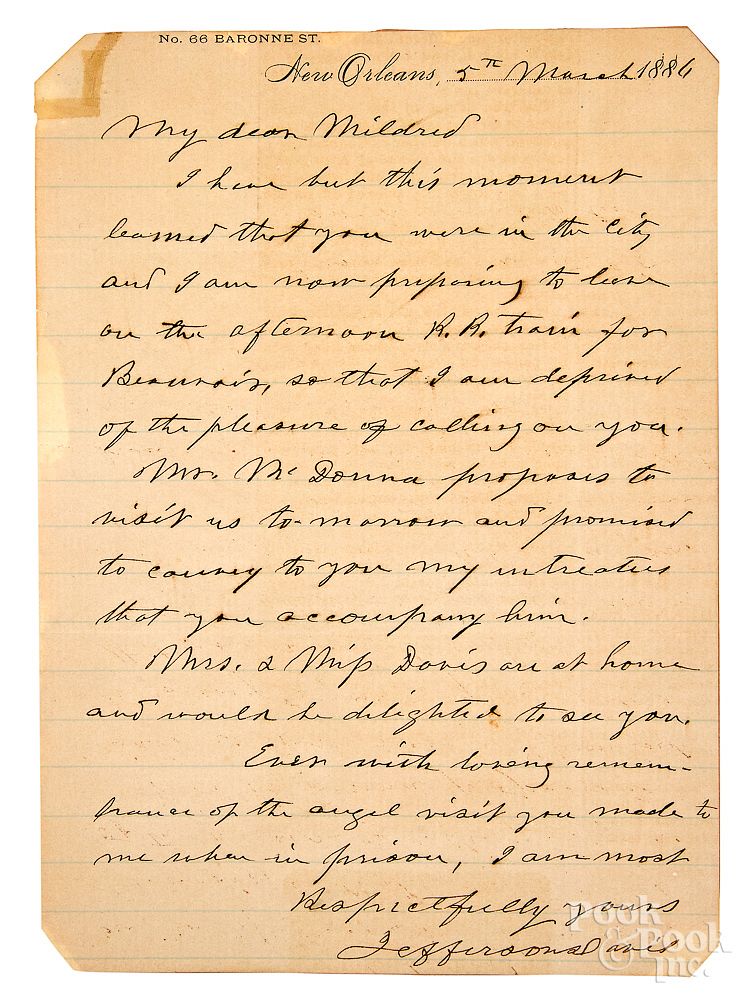 No. 66 BARONNE ST.
New Orleans, 5th March 1886
My dear Mildred
I have but this moment
learned that you were in the city
and I am now preparing to leave
on the afternoon R.R. train for
Beauvoir, so that I am deprived
of the pleasure of calling on you.
Mr. McDonna proposes to
visit us to-morrow and promised
to convey to you my intreaties
that you accompany him.
Mrs. & Miss Davis are at home
and would be delighted to see you.
Ever with loving remem-
brance of the angel visit you made to
me when in prison, I am most
Respectfully yours
Jefferson Davis
Pook
& Pook
Inc.